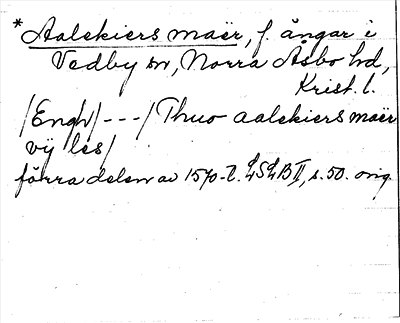 * Aalekiers maër, f. ångar i
Vedby sn, Norra Åsbo hd,
Krist. l.
/Engh/ --- / Thuo aalekiers maër
vij les /
förra delen av 1570-t. LSLB II, s. 50. orig.